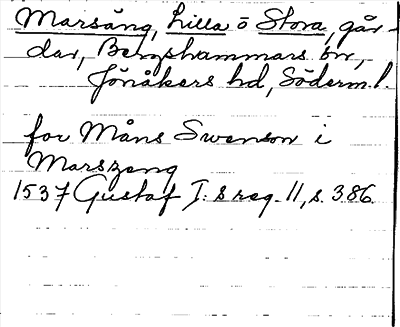 Marsäng, Lilla o Stora, går-
dar, Bergshammars sn,
Jönåkers hd, Söderm. l.
for Måns Swenson i
Marszeng
1537 Gustaf I:s reg. 11, s. 386.